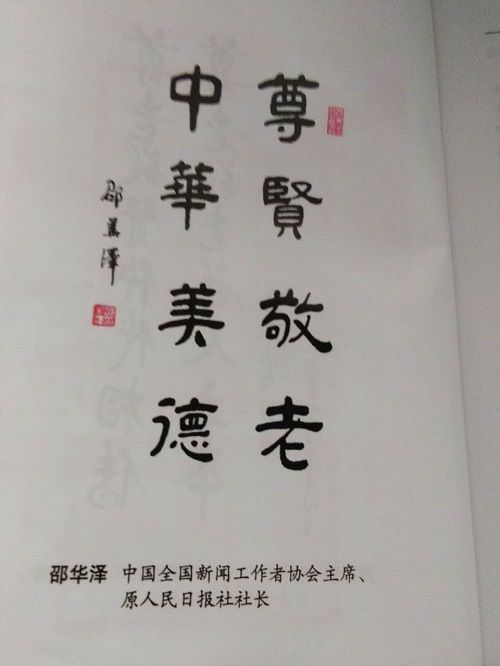 尊賢敬老
中華美德
邵华泽
邵华泽 中国全国新闻工作者协会主席、
原人民日报社社长